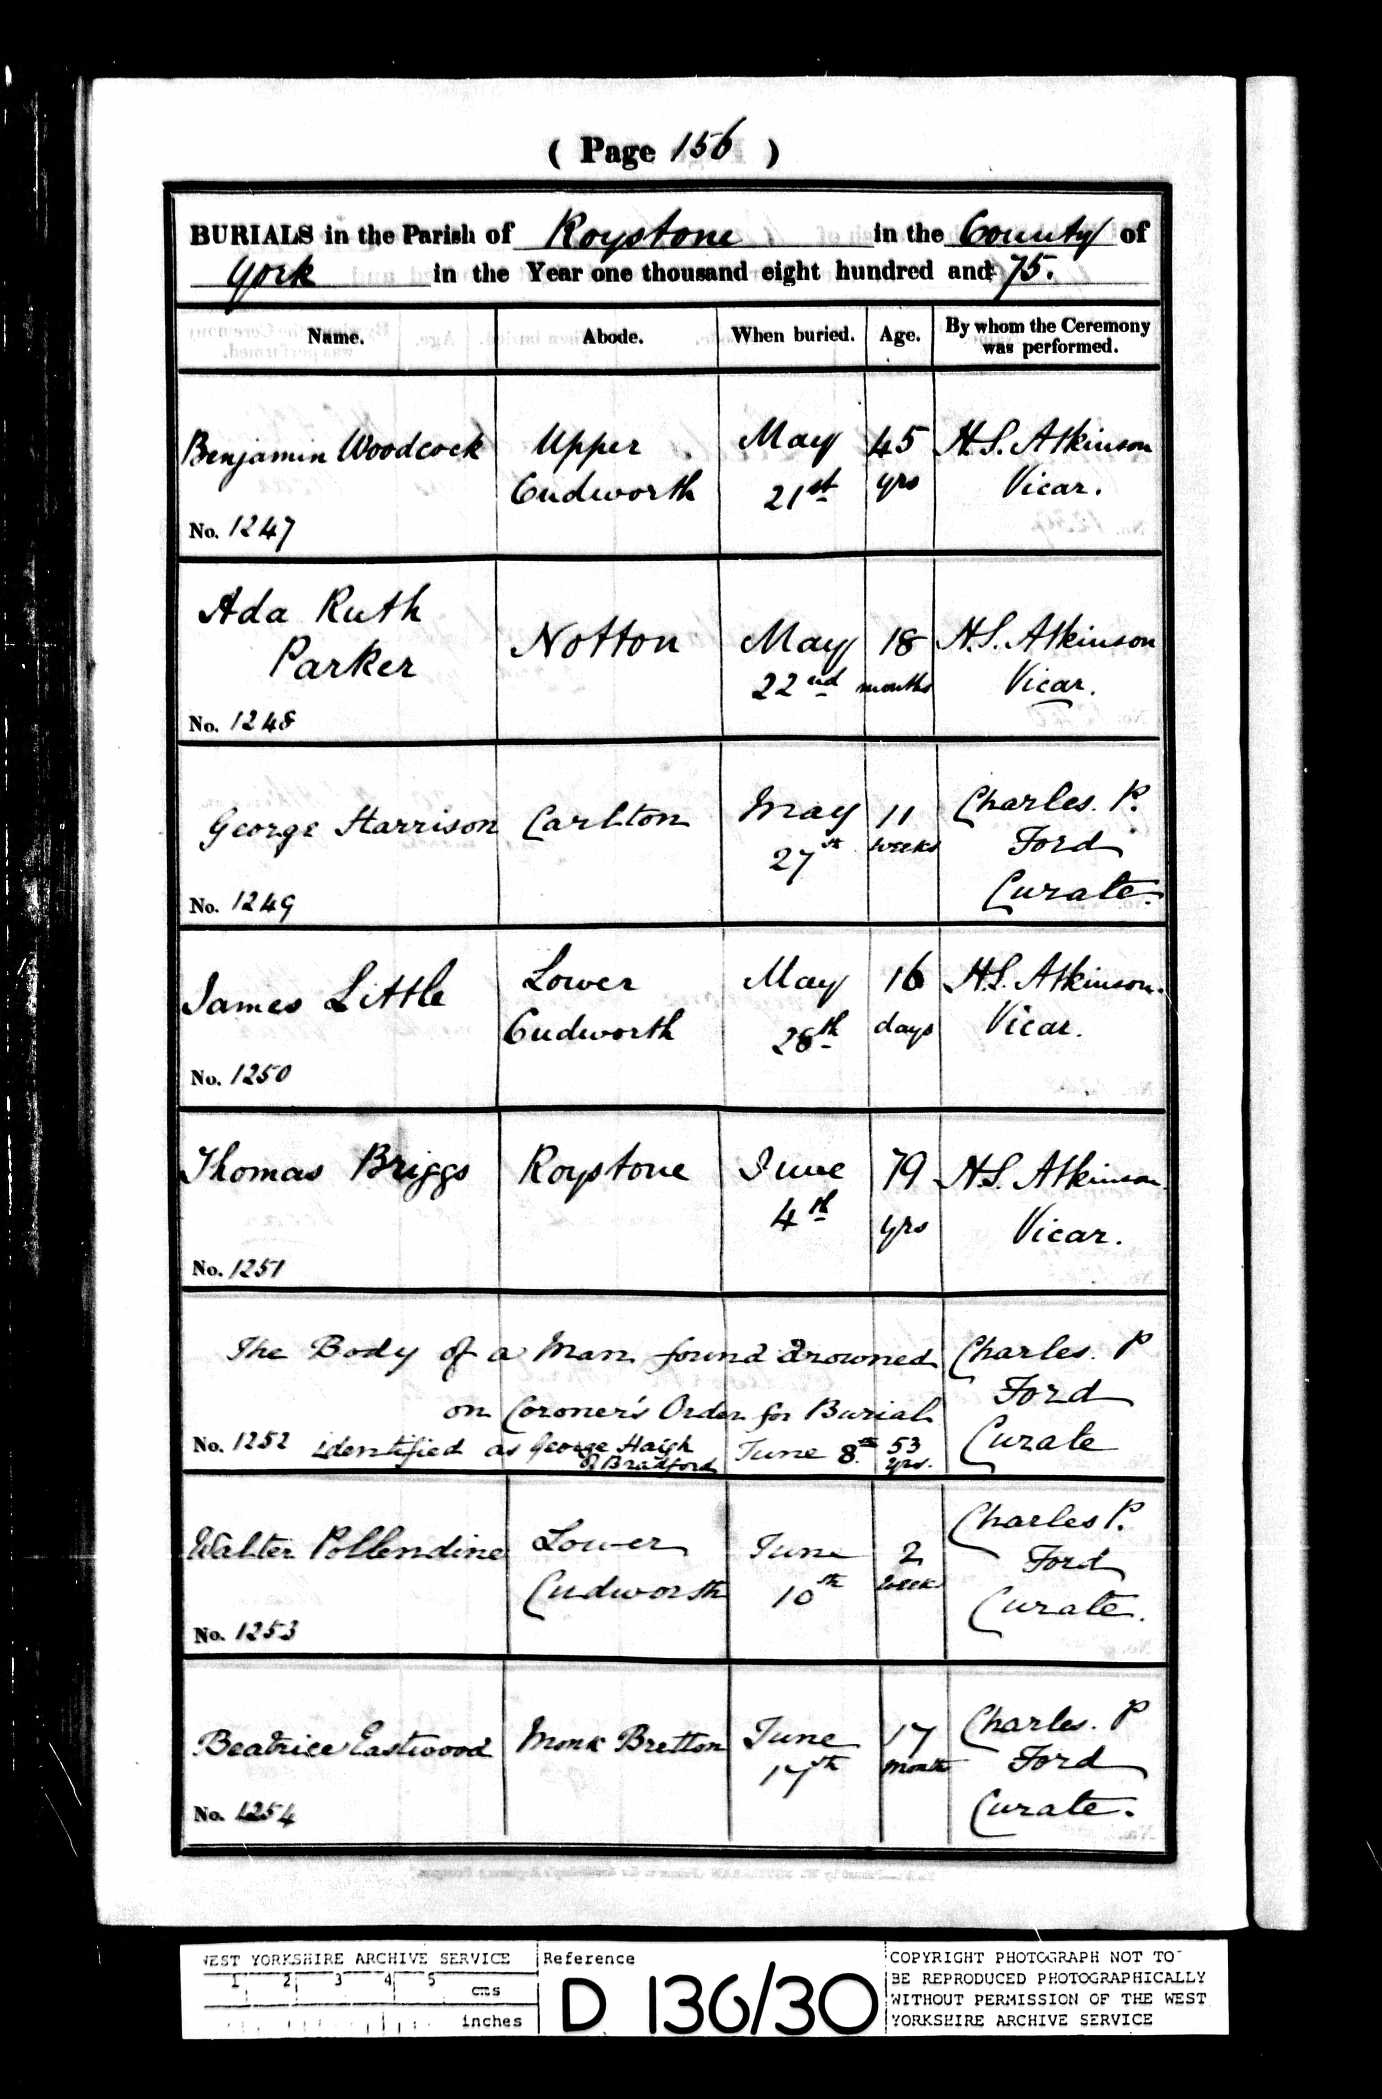 ( Page 156 )
BURIALS in the Parish of Roystone in the County of
York in the Year one thousand eight hundred and 75.
Name. Abode. When buried. Age. By whom the Ceremony was performed.
Benjamin Woodcock Upper May 45 H.S. Atkinson
Cudworth 21st yrs Vicar.
No. 1247
Ada Ruth
Parker Notton May 18 H.S. Atkinson
22nd months Vicar.
No. 1248
George Harrison Carlton May 11 Charles. P.
27th weeks Ford
No. 1249 Curate.
James Little Lower May 16 H.S. Atkinson.
Cudworth 28th days Vicar.
No. 1250
Thomas Briggs Roystone June 79 H.S. Atkinson
4th yrs Vicar.
No. 1251
The Body of a Man found drowned Charles. P
on Coroner's Order for Burial Ford
No. 1252 identified as George Haigh June 8th 53 Curate
of Bradford yrs.
Walter Pollendine Lower June 2 Charles P.
Cudworth 10th weeks Ford
No. 1253 Curate.
Beatrice Eastwood Monk Bretton June 17 Charles. P
17th months Ford
No. 1254 Curate.
WEST YORKSHIRE ARCHIVE SERVICE
1 2 3 4 5
cms
inches
Reference
D 136/30
COPYRIGHT PHOTOGRAPH NOT TO
BE REPRODUCED PHOTOGRAPHICALLY
WITHOUT PERMISSION OF THE WEST
YORKSHIRE ARCHIVE SERVICE